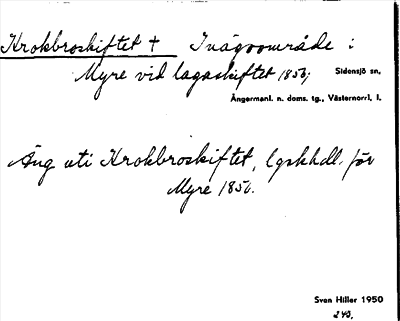 Krokbroskiftet † Inägoområde i
Myre vid lagaskiftet 1850; Sidensjö sn,
Ångermanl. n. doms. tg., Västernorrl. l.
Äng uti Krokbroskiftet, lgskhdl. för
Myre 1850.
Sven Hiller 1950